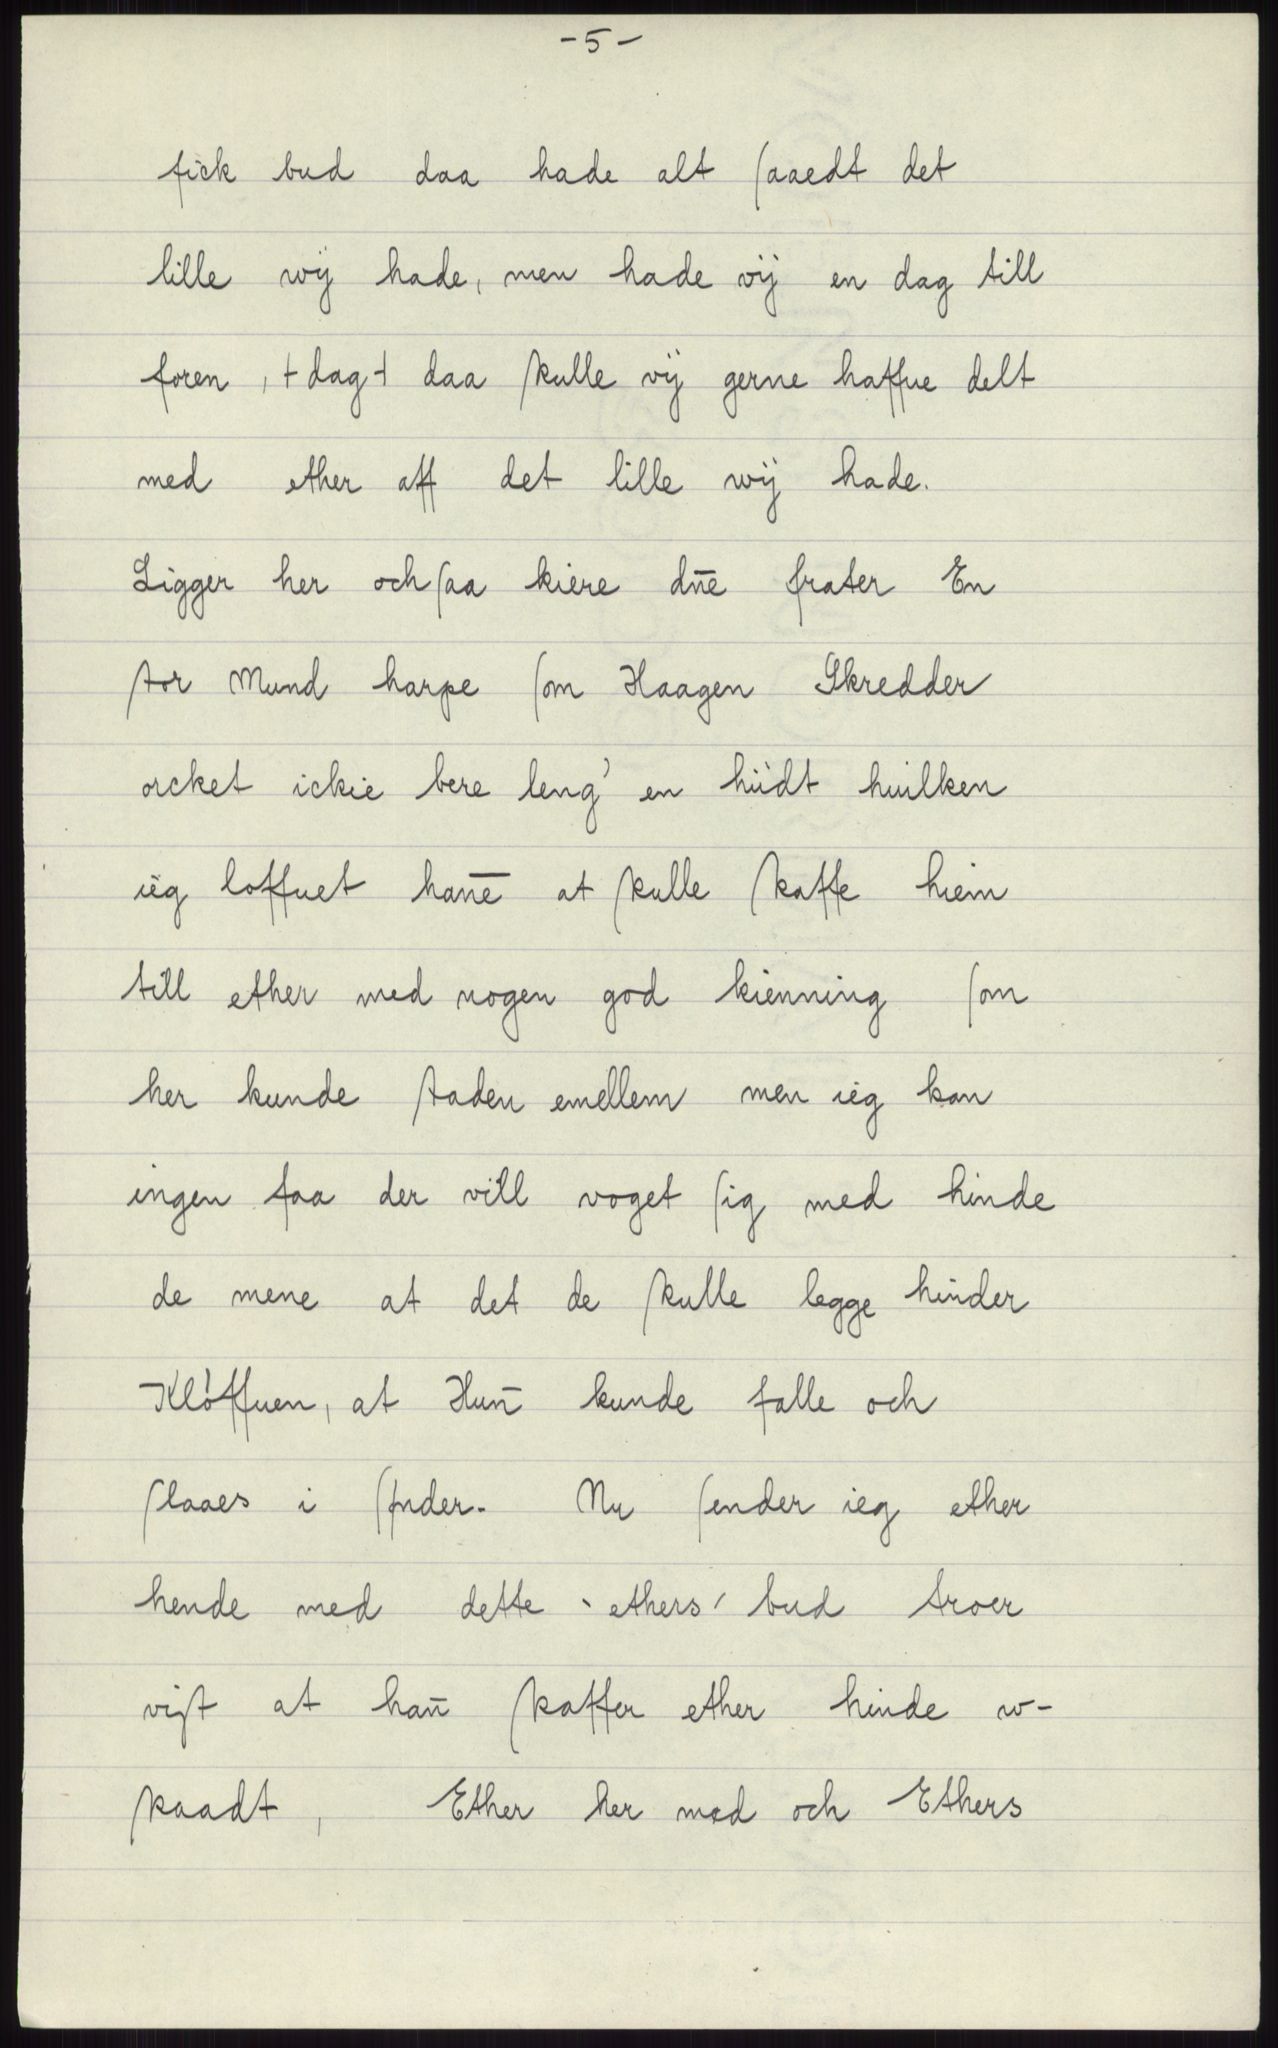 -5-
fick bud daa hade alt ſaaedt det
lille wÿ hade, men hade vÿ en dag till
foren, + dag + daa ſkulle vÿ gerne haffue delt
med ether aff det lille wÿ hade.
Ligger her och ſaa kiere dn̄e frater En
ſtor Mund harpe ſom Haagen Skredder
orcket ickie bere leng' en hiidt huilken
ieg loffuet han̄e at ſkulle ſkaffe hiem
till ether med nogen god kienning ſom
her kunde ſtaden emellem men ieg kan
ingen faa der vill voget ſig med hinde
de mene at det de ſkulle legge hinder
Kløffuen, at Hun̄ kunde falle och
ſlaaes i ſønder. Nu ſender ieg ether
hende med dette ‵ ethers ′ bud troer
viſt at han̄ ſkaffer ether hinde w-
ſkaadt, Ether her med och Ethers